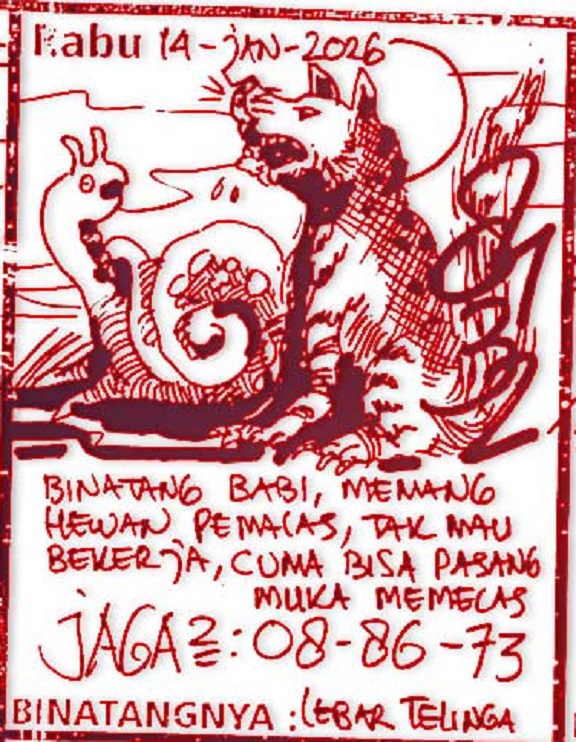 Rabu 14-JAN-2026
BINATANG BABI, MEMANG
HEWAN PEMALAS, TAK MAU
BEKERJA, CUMA BISA PASANG
MUKA MEMELAS
JAGA2: 08-86-73
BINATANGNYA : LEBAR TELINGA